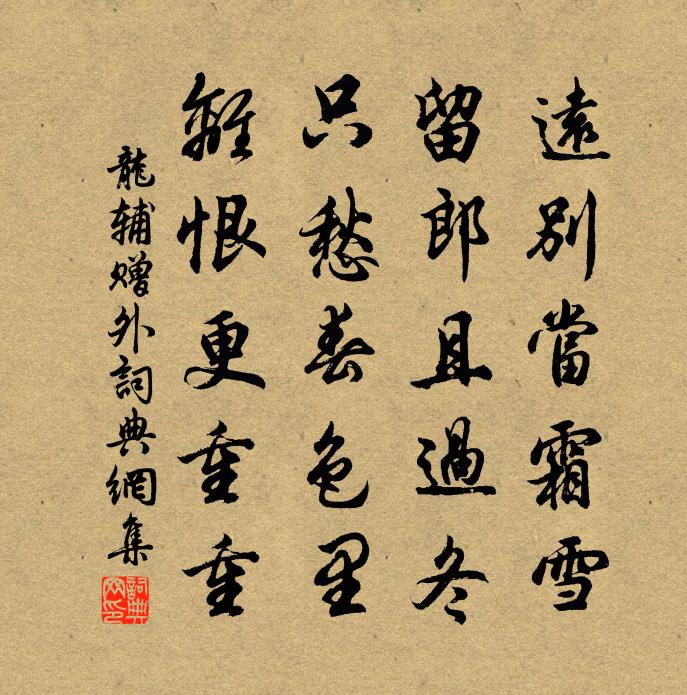 遠別當霜雪
留郎且過冬
只愁春色里
離恨更重重
龍輔贈外詞典網集
詞典网印